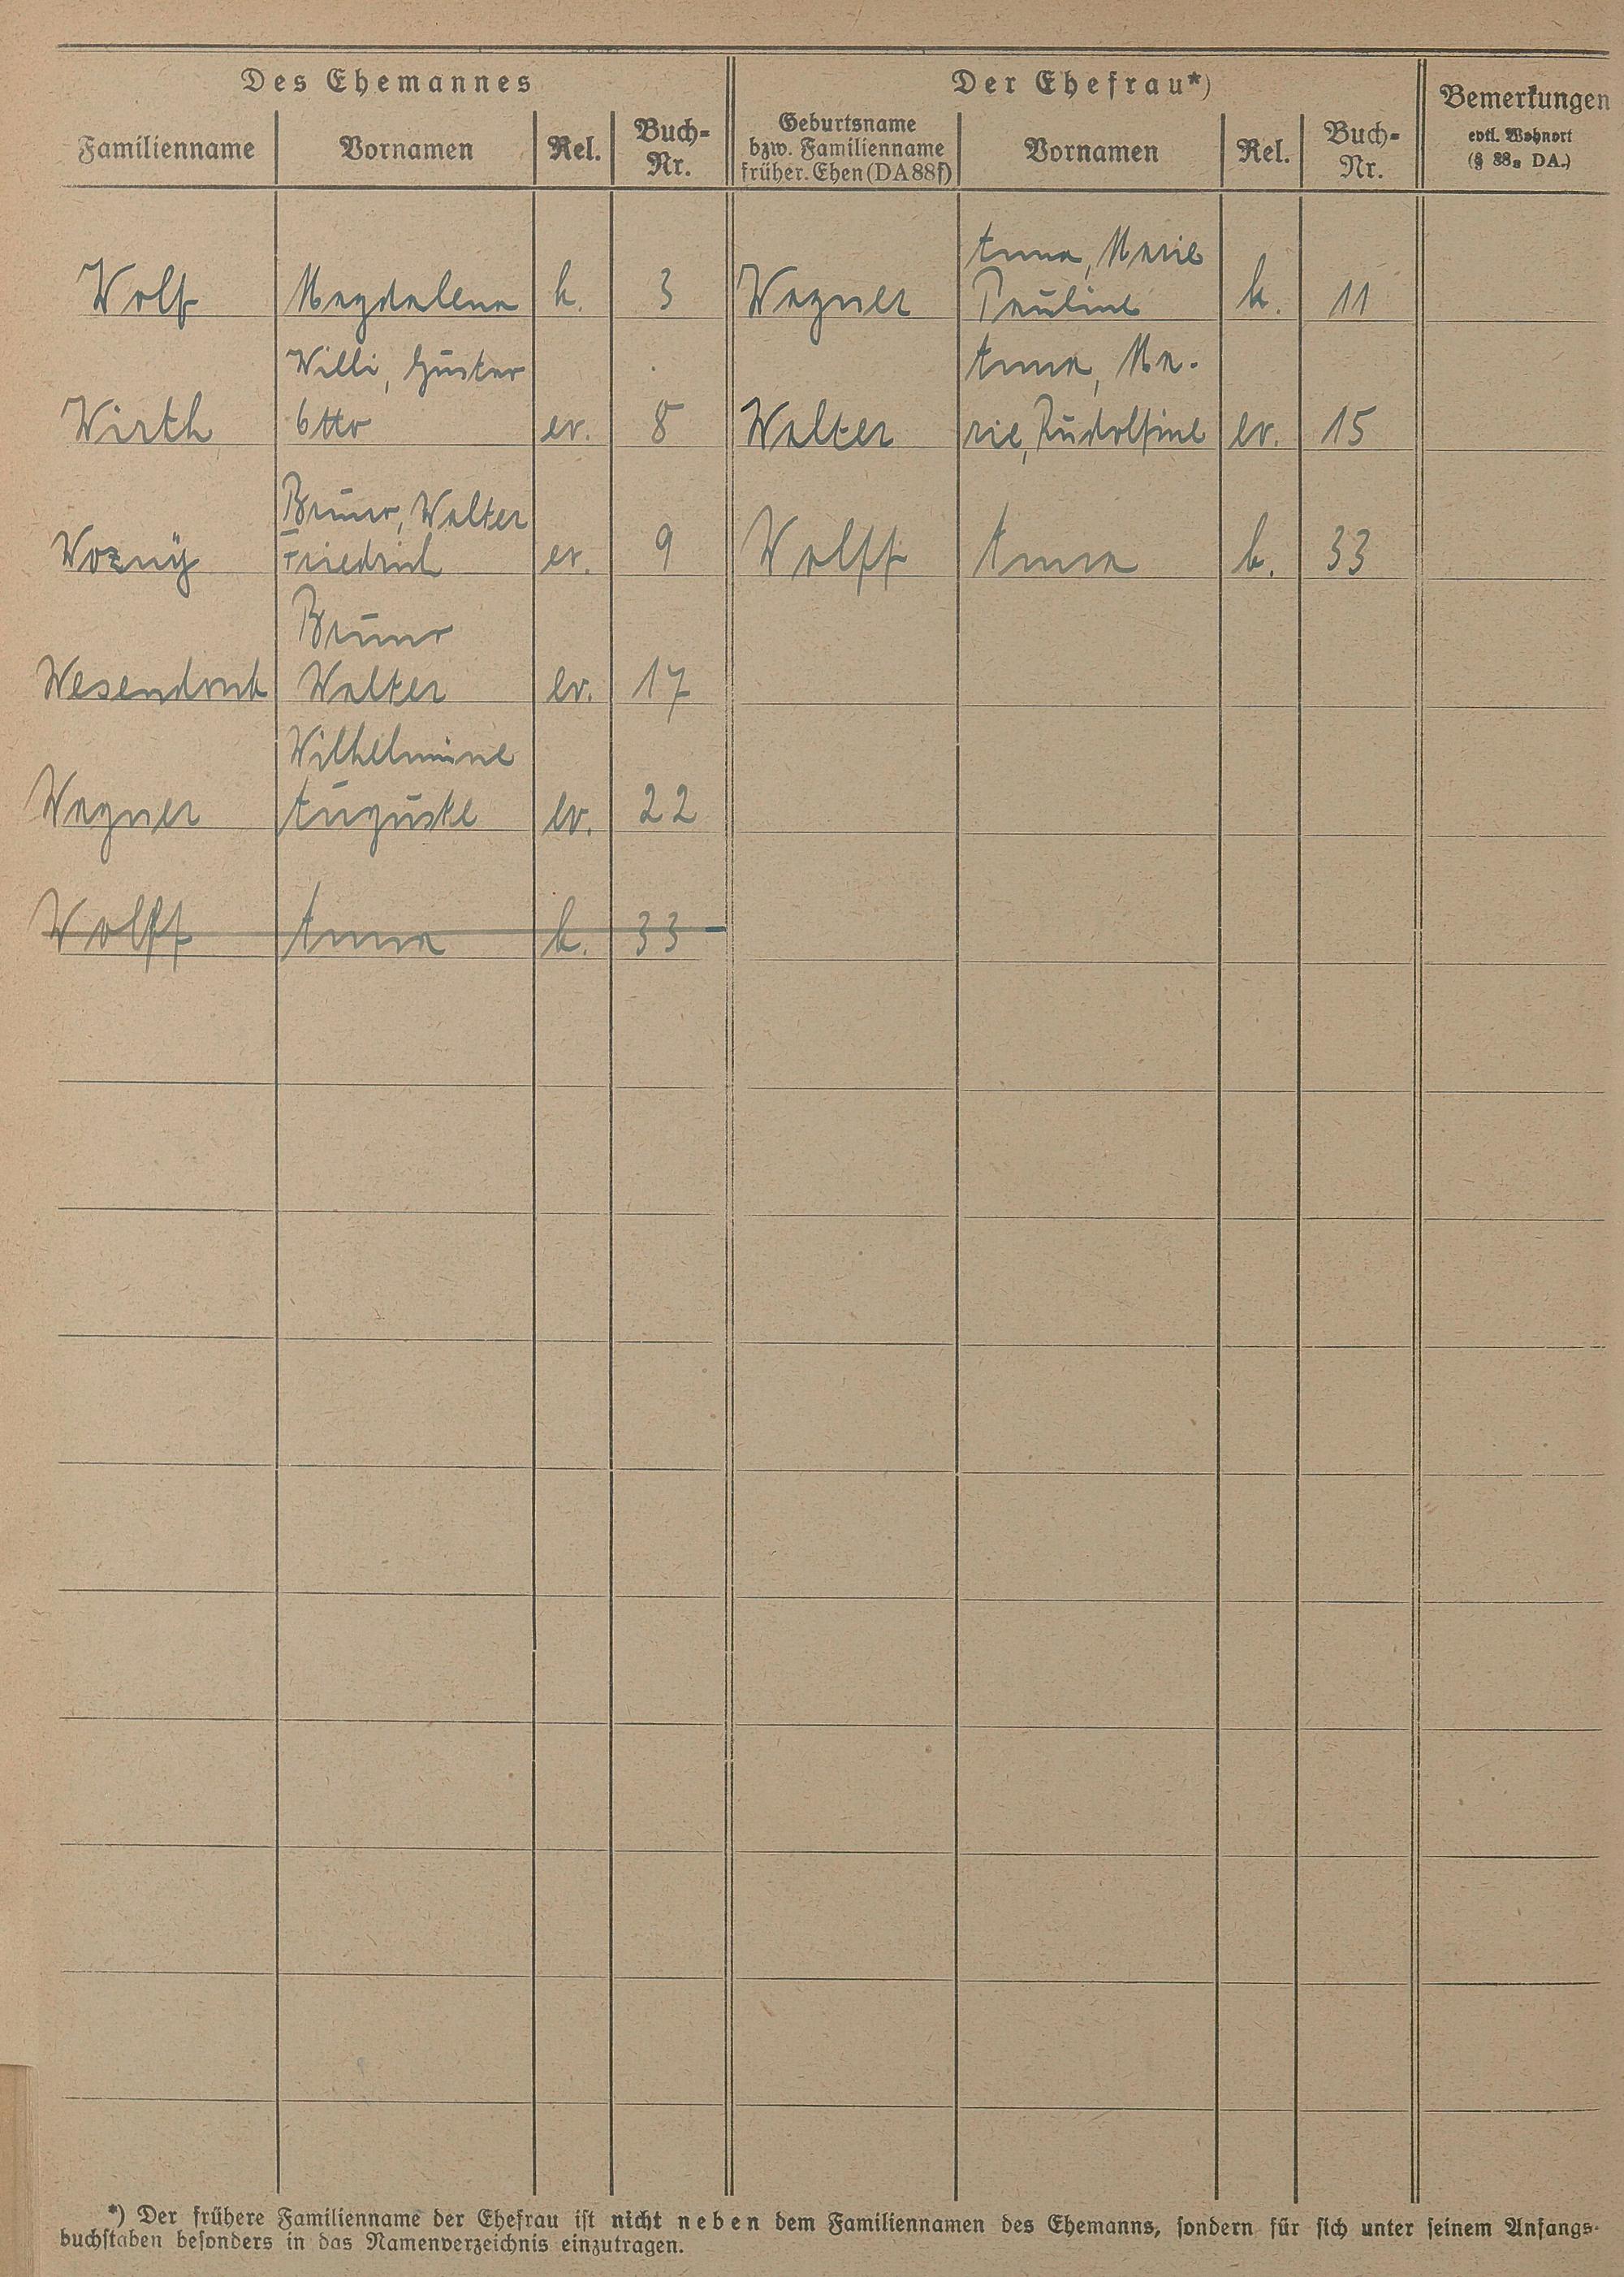 Des Ehemannes
Der Ehefrau*)
Bemerkungen
evtl. Wohnort
(§ 88a DA.)
Familienname
Vornamen
Rel.
Buch-
Nr.
Geburtsname
bzw. Familienname
früher. Ehen (DA 88f)
Vornamen
Rel.
Buch-
Nr.
Anna, Marie
Wolf Magdalena k. 3 Wagner Pauline k. 11
Willi, Gustav Anna, Ma-
Wirth Otto ev. 8 Walter rie, Rudolfine ev. 15
Bruno, Walter
Woznÿ Friedrich ev. 9 Wolff Anna k. 33
Bruno
Wesendonk Walter ev. 17
Wilhelmine
Wagner Auguste ev. 22
Wolff Anna k. 33
*) Der frühere Familienname der Ehefrau ist nicht neben dem Familiennamen des Ehemanns, sondern für sich unter seinem Anfangs-
buchstaben besonders in das Namenverzeichnis einzutragen.